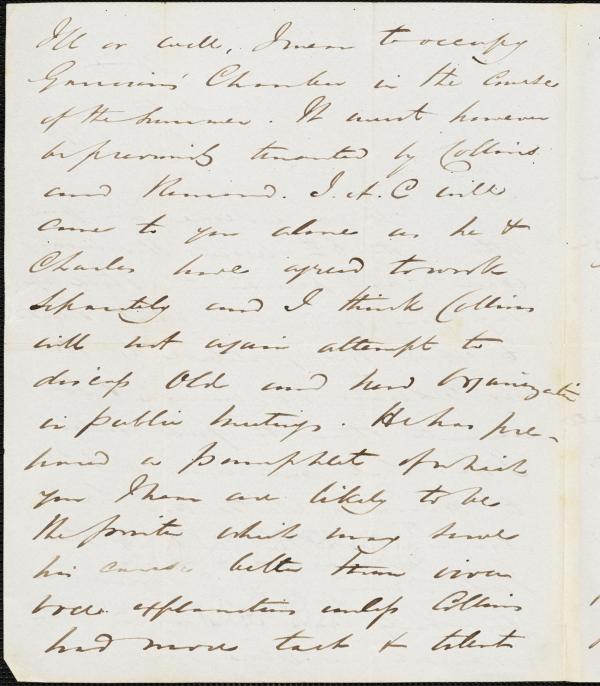 Ill or well, I mean to occupy
Garrison's Chamber in the course
of the Summer. It must however
be previously tenanted by Collins
and Remond. J. A. C will
come to you alone as he &
Charles have agreed to work
separately and I think Collins
will not again attempt to
discuss Old and new Organizatin
in public meetings. He has pre-
pared a pamphlet of which
you I hear are likely to be
the printer which may serve
his cause better than viva
voce explanations unless Collins
had more tact & talent